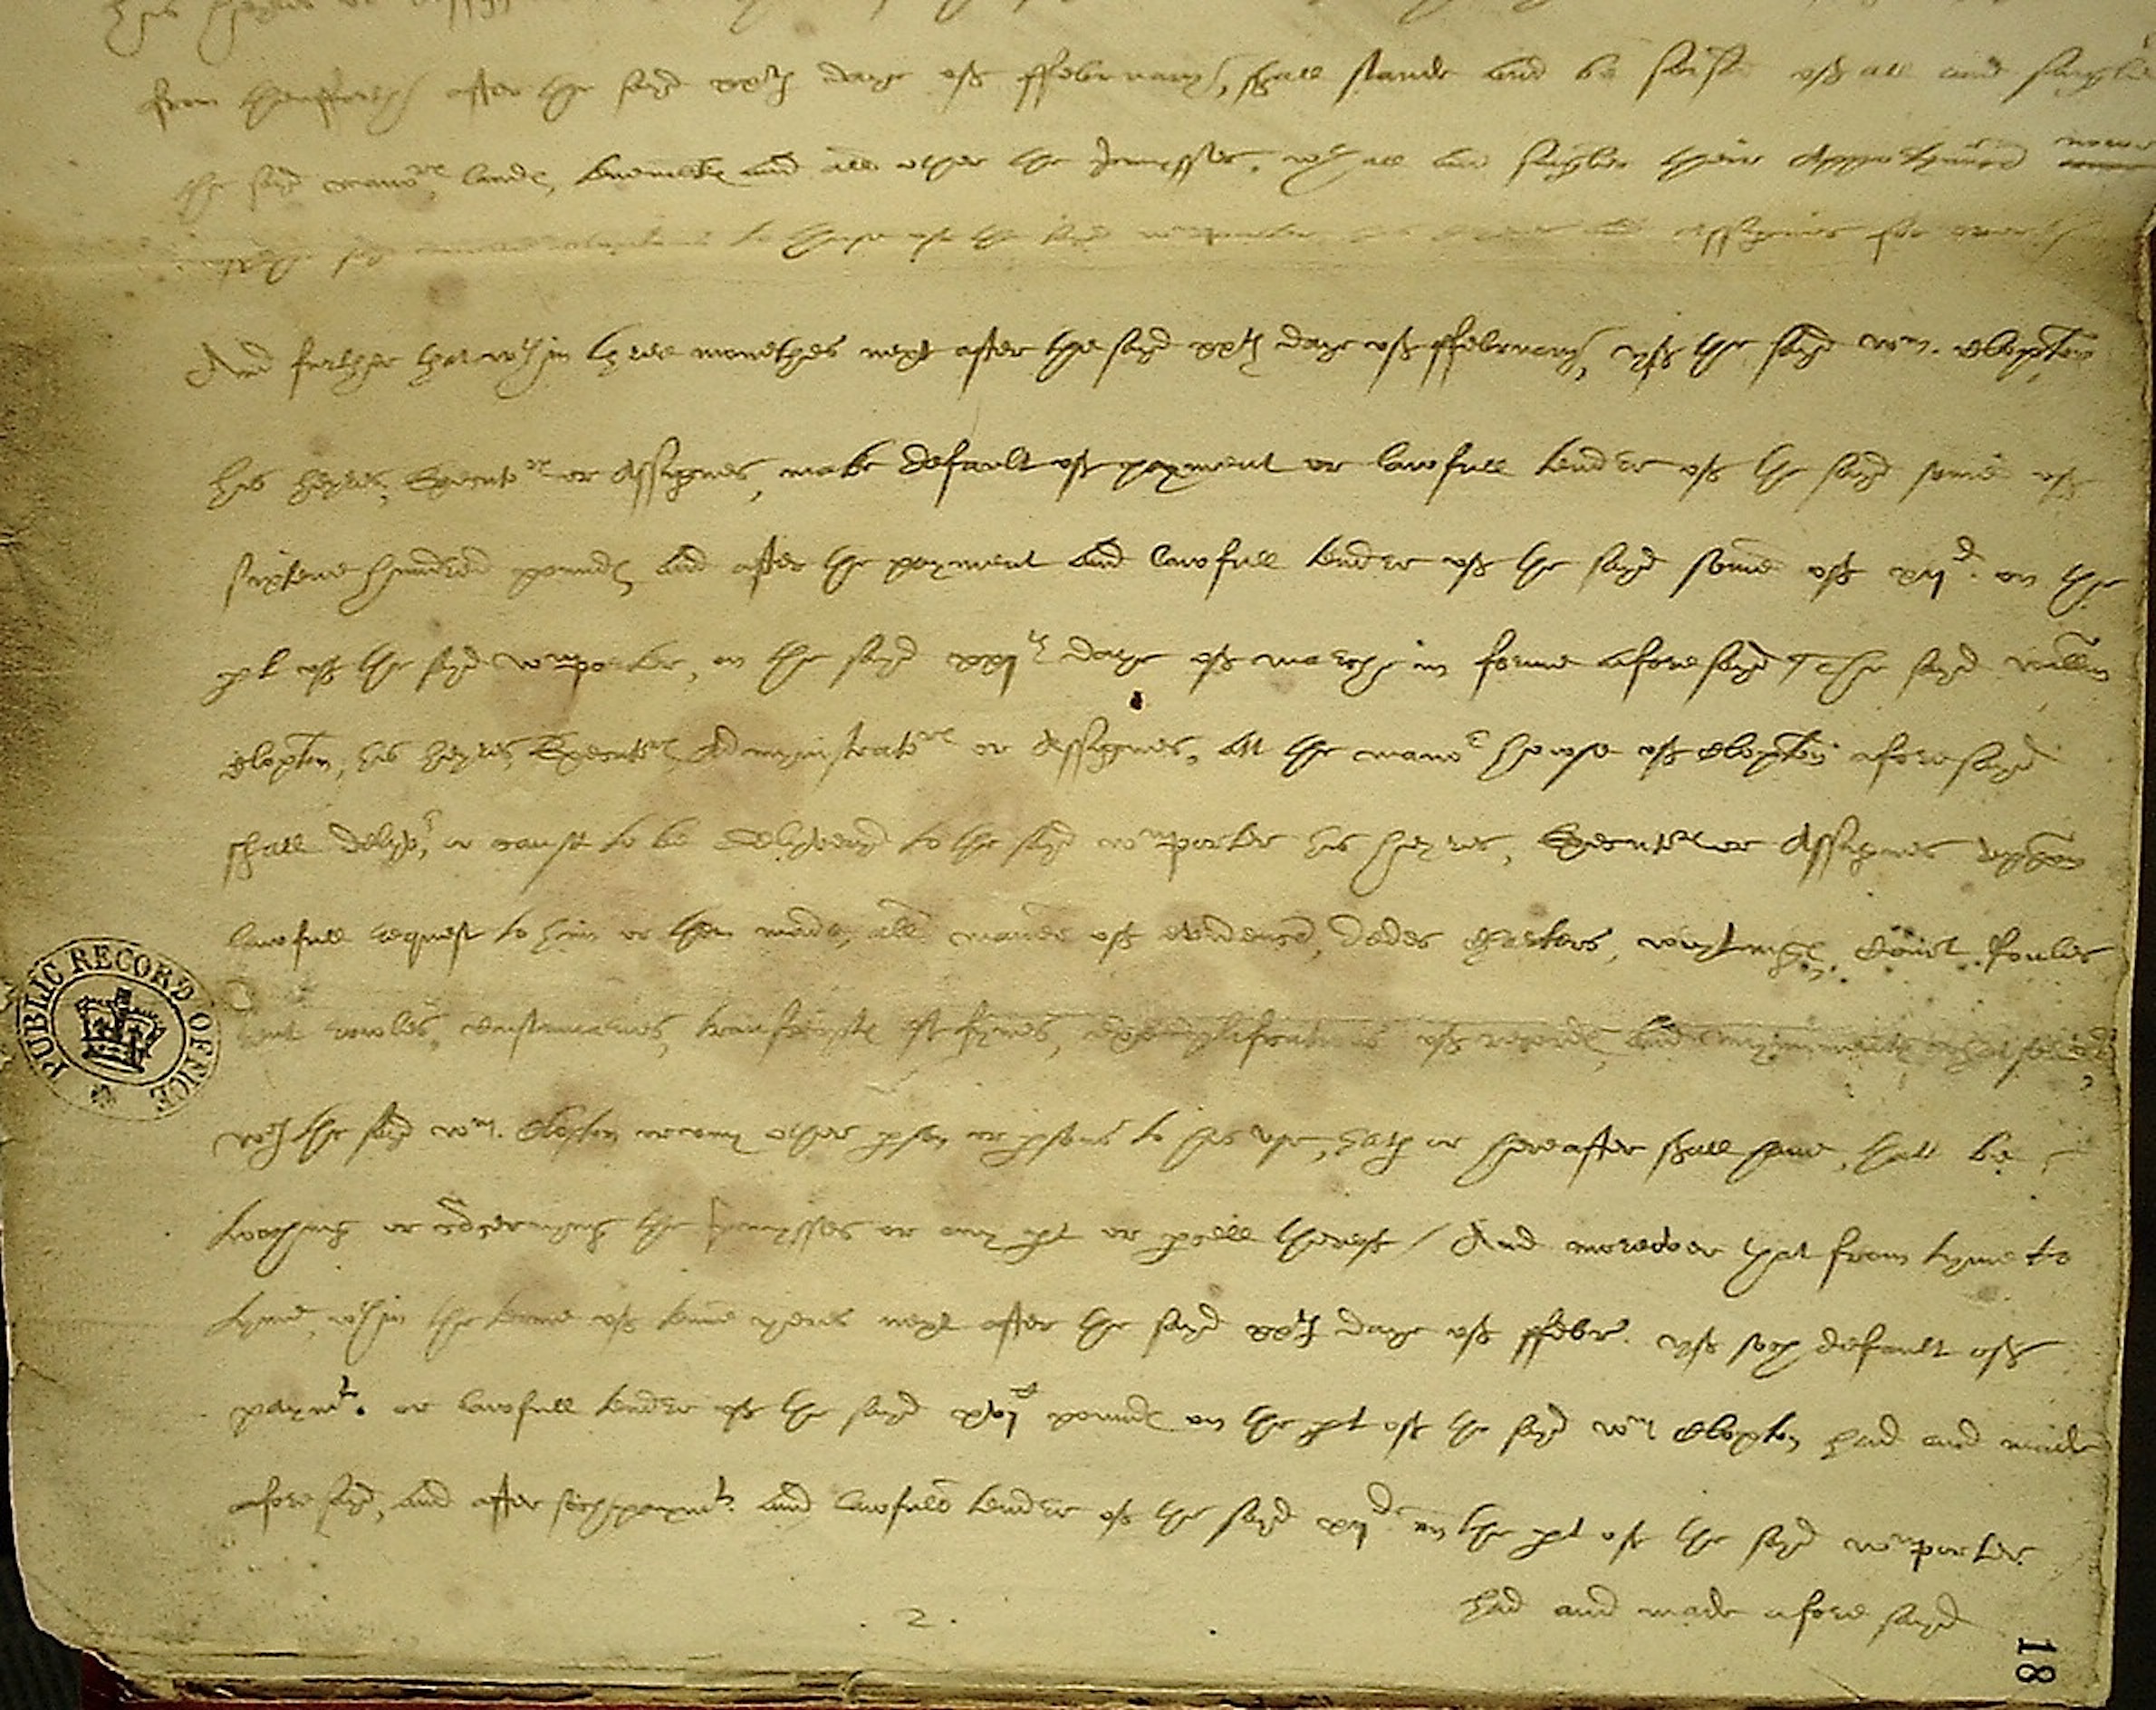 his heyres or assignes
from hensforth after the sayd xxth daye off ffebruary, shall stande and be seised off all and singler
the sayd manors, lands, tenements and all other the premysses, wth all and singler their Appurtenances
to the use off the sayd Wm porter his heires and assignes for ever
And further that wthin three monethes next after the sayd xxth daye off ffebruary, yff the sayd Wm. Clopton
his heyres, Executors or Assignes, make default off payment or lawfull tender off the sayd some off
sixtene hundred pounds, and after the payment and lawfull tender off the sayd some off xijd. on the
pt off the sayd Wm porter, on the sayd xxjth daye off marche in forme aforesayd / The sayd Willm
Clopton, his heyres, Executors, Admynistrators or Assignes, att the manor howse off Clopton aforesayd
shall delyver, or cause to be delyvered to the sayd Wm porter his heyres, Executors or Assignes uppon
lawfull request to him or them made, all maner off evidences, dedes charters, wrytings, Court roules
rent roules, custumaries, transcripts off fynes, exemplifications off records, and mynuments whatsoever,
wch the sayd Wm. Clopton or any other pson or psons to his use, hath or hereafter shall have, that be
towching or concernyng the premysses or any pt or pcell theroff / And moreover that from tyme to
tyme, wthin the terme off tenne yeres next after the sayd xxth daye off ffebr. yff such default off
paymt. or lawfull tender off the sayd xvjC pounds on the pt off the sayd Wm Clopton had and made
aforesayd, and after such paymt. and lawfull tender off the sayd xijd. on the pt off the sayd Wm porter
had and made afore sayd
. 2 .
18
PUBLIC RECORD OFFICE